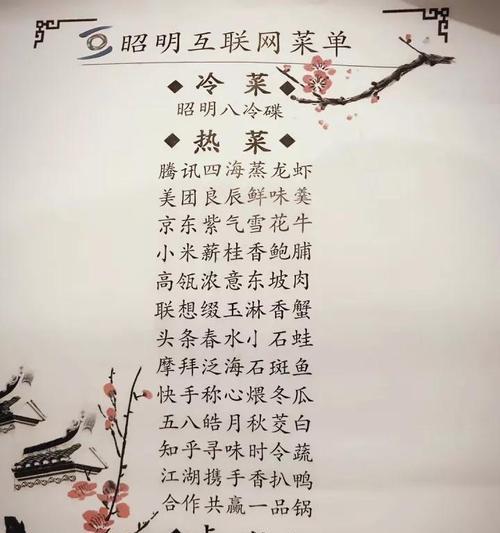 昭明互联网菜单
◆ 冷菜 ◆
昭明八冷碟
◆ 热菜 ◆
腾讯四海蒸龙虾
美团良辰鲜味羹
京东紫气雪花牛
小米薪桂香鲍脯
高瓴浓意东坡肉
联想缀玉淋香蟹
头条春水小石蛙
摩拜泛海石斑鱼
快手称心煨冬瓜
五八皓月秋茭白
知乎寻味时令蔬
江湖携手香扒鸭
合作共赢一品锅